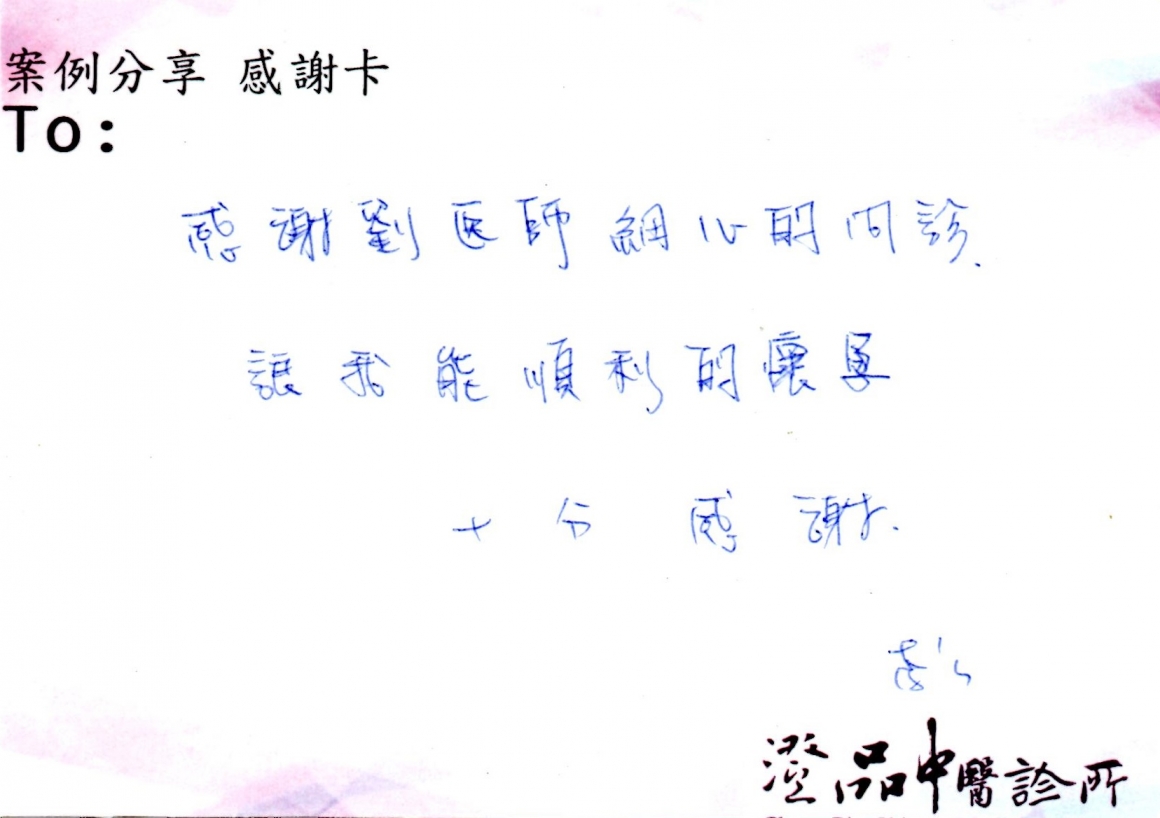 案例分享 感謝卡
To:
感謝劉医師細心的问診.
讓我能順利的懷孕
十分感謝.
澄品中醫診所